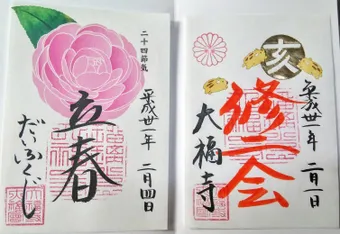 二十四節気
平成卅一年 二月四日
立春
だいふくじ
亥
平成卅一年 二月一日
修二会
大福寺